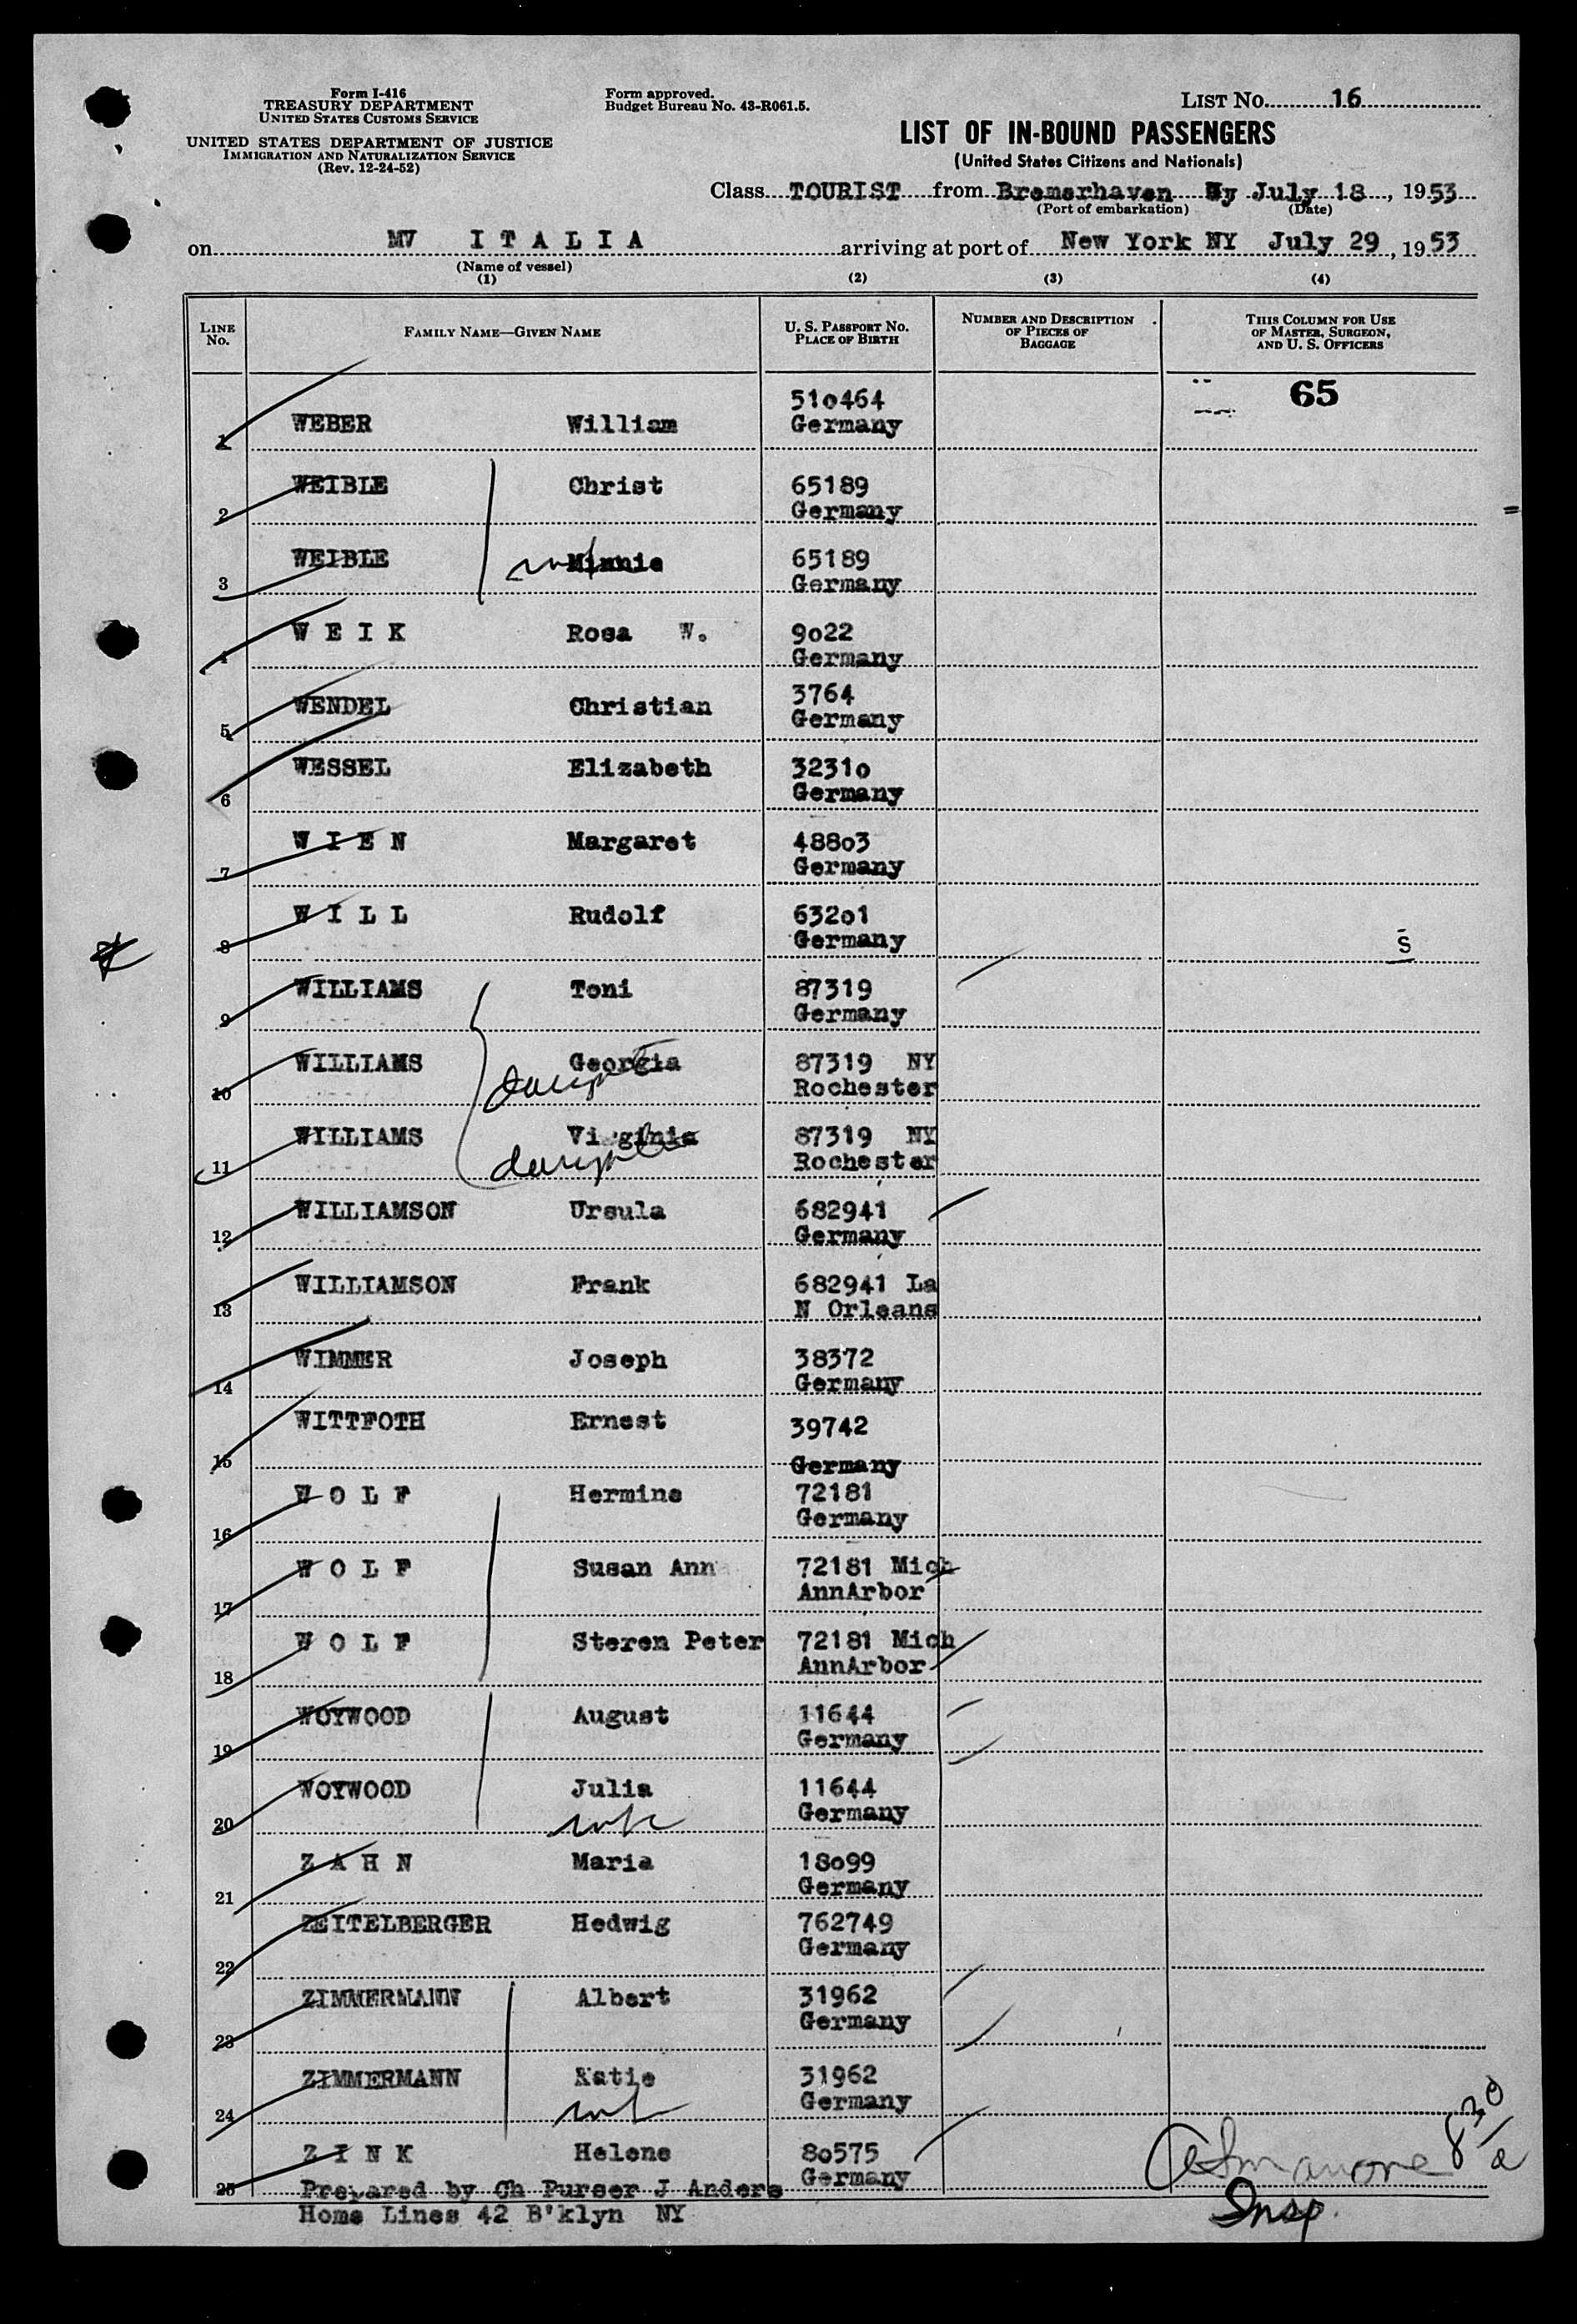 Form I-416
TREASURY DEPARTMENT
UNITED STATES CUSTOMS SERVICE
UNITED STATES DEPARTMENT OF JUSTICE
IMMIGRATION AND NATURALIZATION SERVICE
(Rev. 12-24-52)
Form approved.
Budget Bureau No. 43-R061.5.
LIST NO. 16
LIST OF IN-BOUND PASSENGERS
(United States Citizens and Nationals)
Class TOURIST from Bremerhaven July 18, 1953
(Port of embarkation) (Date)
on MV ITALIA arriving at port of New York NY July 29, 1953
(Name of vessel)
(1) (2) (3) (4)
LINE NO. FAMILY NAME—GIVEN NAME U. S. PASSPORT NO. PLACE OF BIRTH NUMBER AND DESCRIPTION OF PIECES OF BAGGAGE THIS COLUMN FOR USE OF MASTER, SURGEON, AND U. S. OFFICERS
65
1 WEBER William 510464
Germany
2 WEIBLE Christ 65189
Germany
3 WEIBLE Minnie 65189
Germany
4 WEIK Rosa W. 9022
Germany
5 WENDEL Christian 3764
Germany
6 WESSEL Elizabeth 32310
Germany
7 WIEN Margaret 48803
Germany
8 WILL Rudolf 63201
Germany
S
9 WILLIAMS Toni 87319
Germany
10 WILLIAMS Georgia 87319 NY
Rochester
11 WILLIAMS Virginia 87319 NY
Rochester
12 WILLIAMSON Ursula 682941
Germany
13 WILLIAMSON Frank 682941 La
N Orleans
14 WIMMER Joseph 38372
Germany
15 WITTFOTH Ernest 39742
Germany
16 WOLF Hermine 72181
Germany
17 WOLF Susan Ann 72181 Mich
AnnArbor
18 WOLF Steren Peter 72181 Mich
AnnArbor
19 WOYWOOD August 11644
Germany
20 WOYWOOD Julia 11644
Germany
wife
21 ZAHN Maria 18099
Germany
22 ZEITELBERGER Hedwig 762749
Germany
23 ZIMMERMANN Albert 31962
Germany
24 ZIMMERMANN Katie 31962
Germany
25 ZINK Helene 80575
Germany
Prepared by Ch Purser J Anders
Home Lines 42 B'klyn NY
Insp.